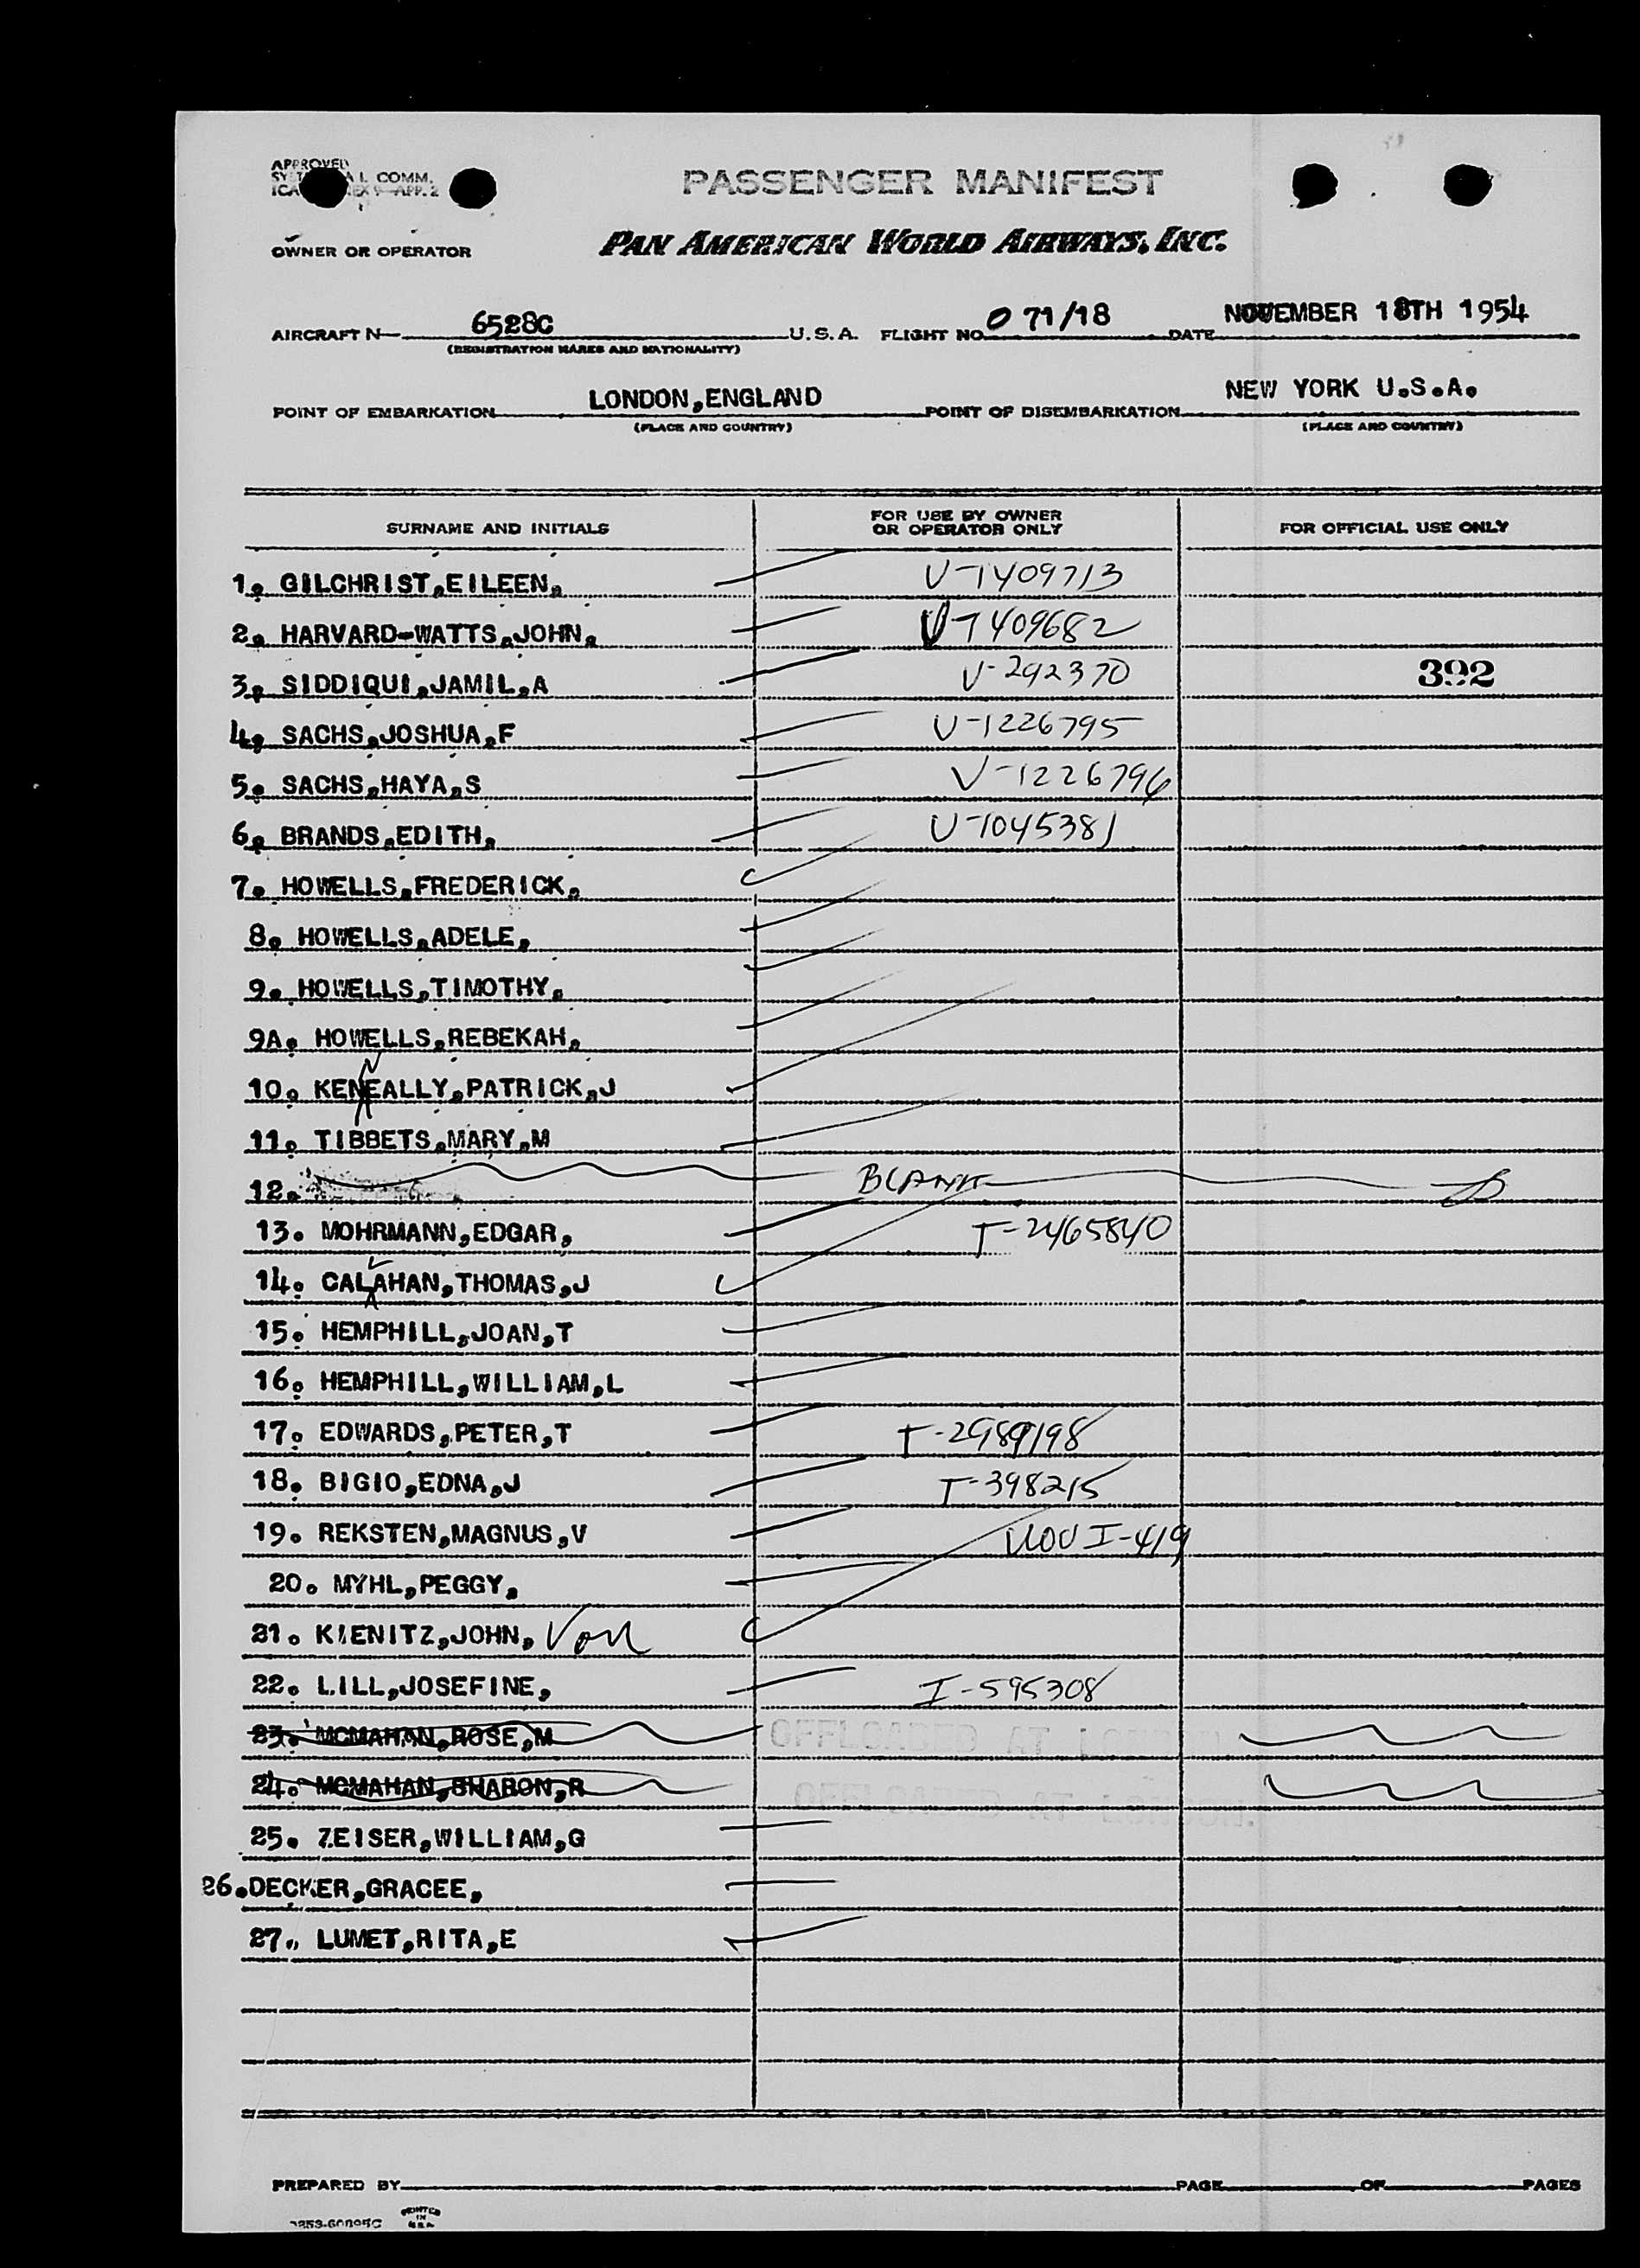 APPROVED
COMM.
APP. 2
PASSENGER MANIFEST
OWNER OR OPERATOR PAN AMERICAN WORLD AIRWAYS, INC.
AIRCRAFT N 6528C U.S.A. FLIGHT NO. 0 71/18 DATE NOVEMBER 18TH 1954
(REGISTRATION MARKS AND NATIONALITY)
POINT OF EMBARKATION LONDON,ENGLAND POINT OF DISEMBARKATION NEW YORK U.S.A.
(PLACE AND COUNTRY) (PLACE AND COUNTRY)
SURNAME AND INITIALS FOR USE BY OWNER OR OPERATOR ONLY FOR OFFICIAL USE ONLY
1. GILCHRIST,EILEEN, V-1409713
2. HARVARD-WATTS,JOHN, V-1409682
3. SIDDIQUI,JAMIL,A V-292370 392
4. SACHS,JOSHUA,F V-1226795
5. SACHS,HAYA,S V-1226796
6. BRANDS,EDITH, V-1045381
7. HOWELLS,FREDERICK,
8. HOWELLS,ADELE,
9. HOWELLS,TIMOTHY,
9A. HOWELLS,REBEKAH,
10. KENNEALLY,PATRICK,J
11. TIBBETS,MARY,M
12. BLANK
13. MOHRMANN,EDGAR, T-2465840
14. CALLAHAN,THOMAS,J
15. HEMPHILL,JOAN,T
16. HEMPHILL,WILLIAM,L
17. EDWARDS,PETER,T T-2989198
18. BIGIO,EDNA,J T-398215
19. REKSTEN,MAGNUS,V I-419
20. MYHL,PEGGY,
21. KIENITZ,JOHN, Von
22. LILL,JOSEFINE, I-595308
23. MCMAHAN,ROSE,M OFFLOADED AT LONDON
24. MCMAHAN,SHARON,R OFFLOADED AT LONDON.
25. ZEISER,WILLIAM,G
26.DECKER,GRACEE,
27. LUMET,RITA,E
PREPARED BY PAGE OF PAGES
PRINTED
IN
U.S.A.